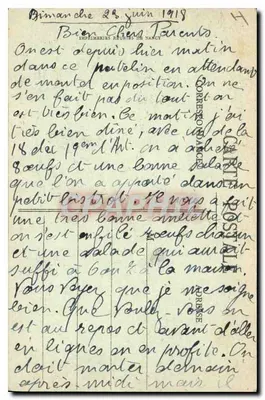 Dimanche 23 juin 1918
Bien Chers Parents
On est depuis hier matin
dans ce patelin en attendant
de monter exposition. On ne
s'en fait pas du tout on
est très bien. Ce matin j'ai
très bien diné, avec un de la
18 du 19em d'Art. on a acheté
8 œufs et une bonne salade
que l'on a apporté dans un
petit bistrot
une très bonne omelette
on s'est enfilé 8 œufs chacun
et une salade qui aurait
suffi à à la maison.
Vous voyez que je me soigne
bien. Que voulez-vous on
est au repos et avant d'aller
en lignes on en profite. On
doit monter demain
après-midi mais il
CORRESPONDANCE
CARTE POSTALE
ADRESSE